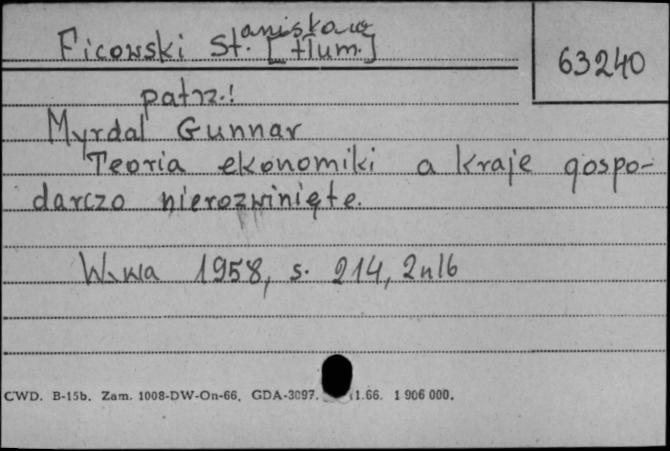 Ficowski St.anisław [tłum.]
63240
patrz.!
Myrdal Gunnar
Teoria ekonomiki a kraje gospo-
darczo nierozwinięte.
W-wa 1958, s. 214, 2nlb
CWD. B-15b. Zam. 1008-DW-On-66. GDA-3097. 1.66. 1 906 000.